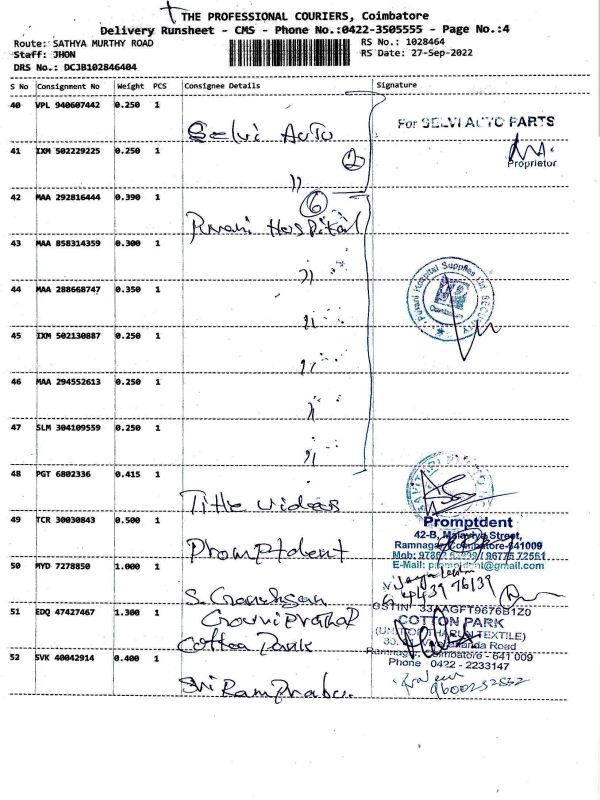 THE PROFESSIONAL COURIERS, Coimbatore
Delivery Runsheet - CMS - Phone No.:0422-3505555 - Page No.:4
Route: SATHYA MURTHY ROAD
RS No.: 1028464
Staff: JHON
RS Date: 27-Sep-2022
DRS No.: DCJB102846404
S No Consignment No Weight PCS Consignee Details Signature
40 VPL 940607442 0.250 1
Selvi Auto
For SELVI AUTO PARTS
Proprietor
41 IXM 502229225 0.250 1
2
"
42 MAA 292816444 0.390 1
6
Purani Hospital
43 MAA 858314359 0.300 1
"
Purani Hospital Supplies
SECURITY
44 MAA 288668747 0.350 1
"
45 IXM 502130887 0.250 1
"
46 MAA 294552613 0.250 1
"
47 SLM 304109559 0.250 1
"
48 PGT 6802336 0.415 1
Title videos
49 TCR 30030843 0.500 1
Promptdent
Promptdent
42-B, Malaviya Street,
Ramnagar, Coimbatore-641009
E-Mail: promptdent@gmail.com
50 MYD 7278850 1.000 1
S. Ganeshgan
51 EDQ 47427467 1.300 1
Cotton Park
GSTIN 33AAGFT9676B1Z0
COTTON PARK
(UNIT OF THARUN TEXTILE)
Road
Ramnagar, Coimbatore - 641 009
Phone 0422 - 2233147
52 SVK 40042914 0.400 1
Sri Ram Prabu
9600252832